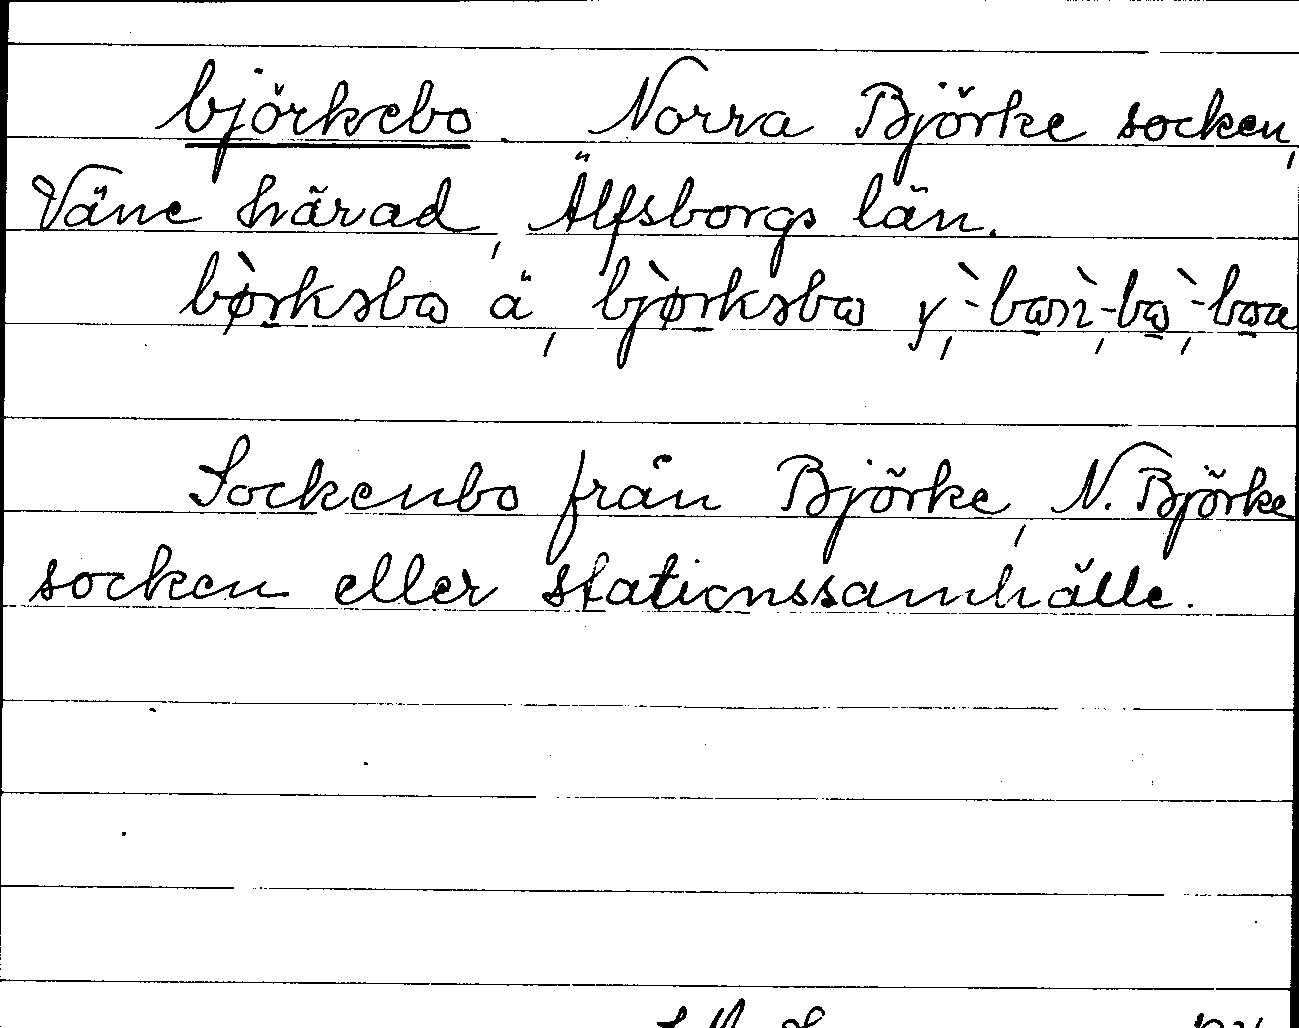 björkebo. Norra Björke socken,
Väne härad, Älfsborgs län.
bø̀rksbɷ ä, bjø̀rksbɷ y, `-bɷn, `-bɷ, `-bɷa
Sockenbo från Björke, N. Björke
socken eller stationssamhälle.